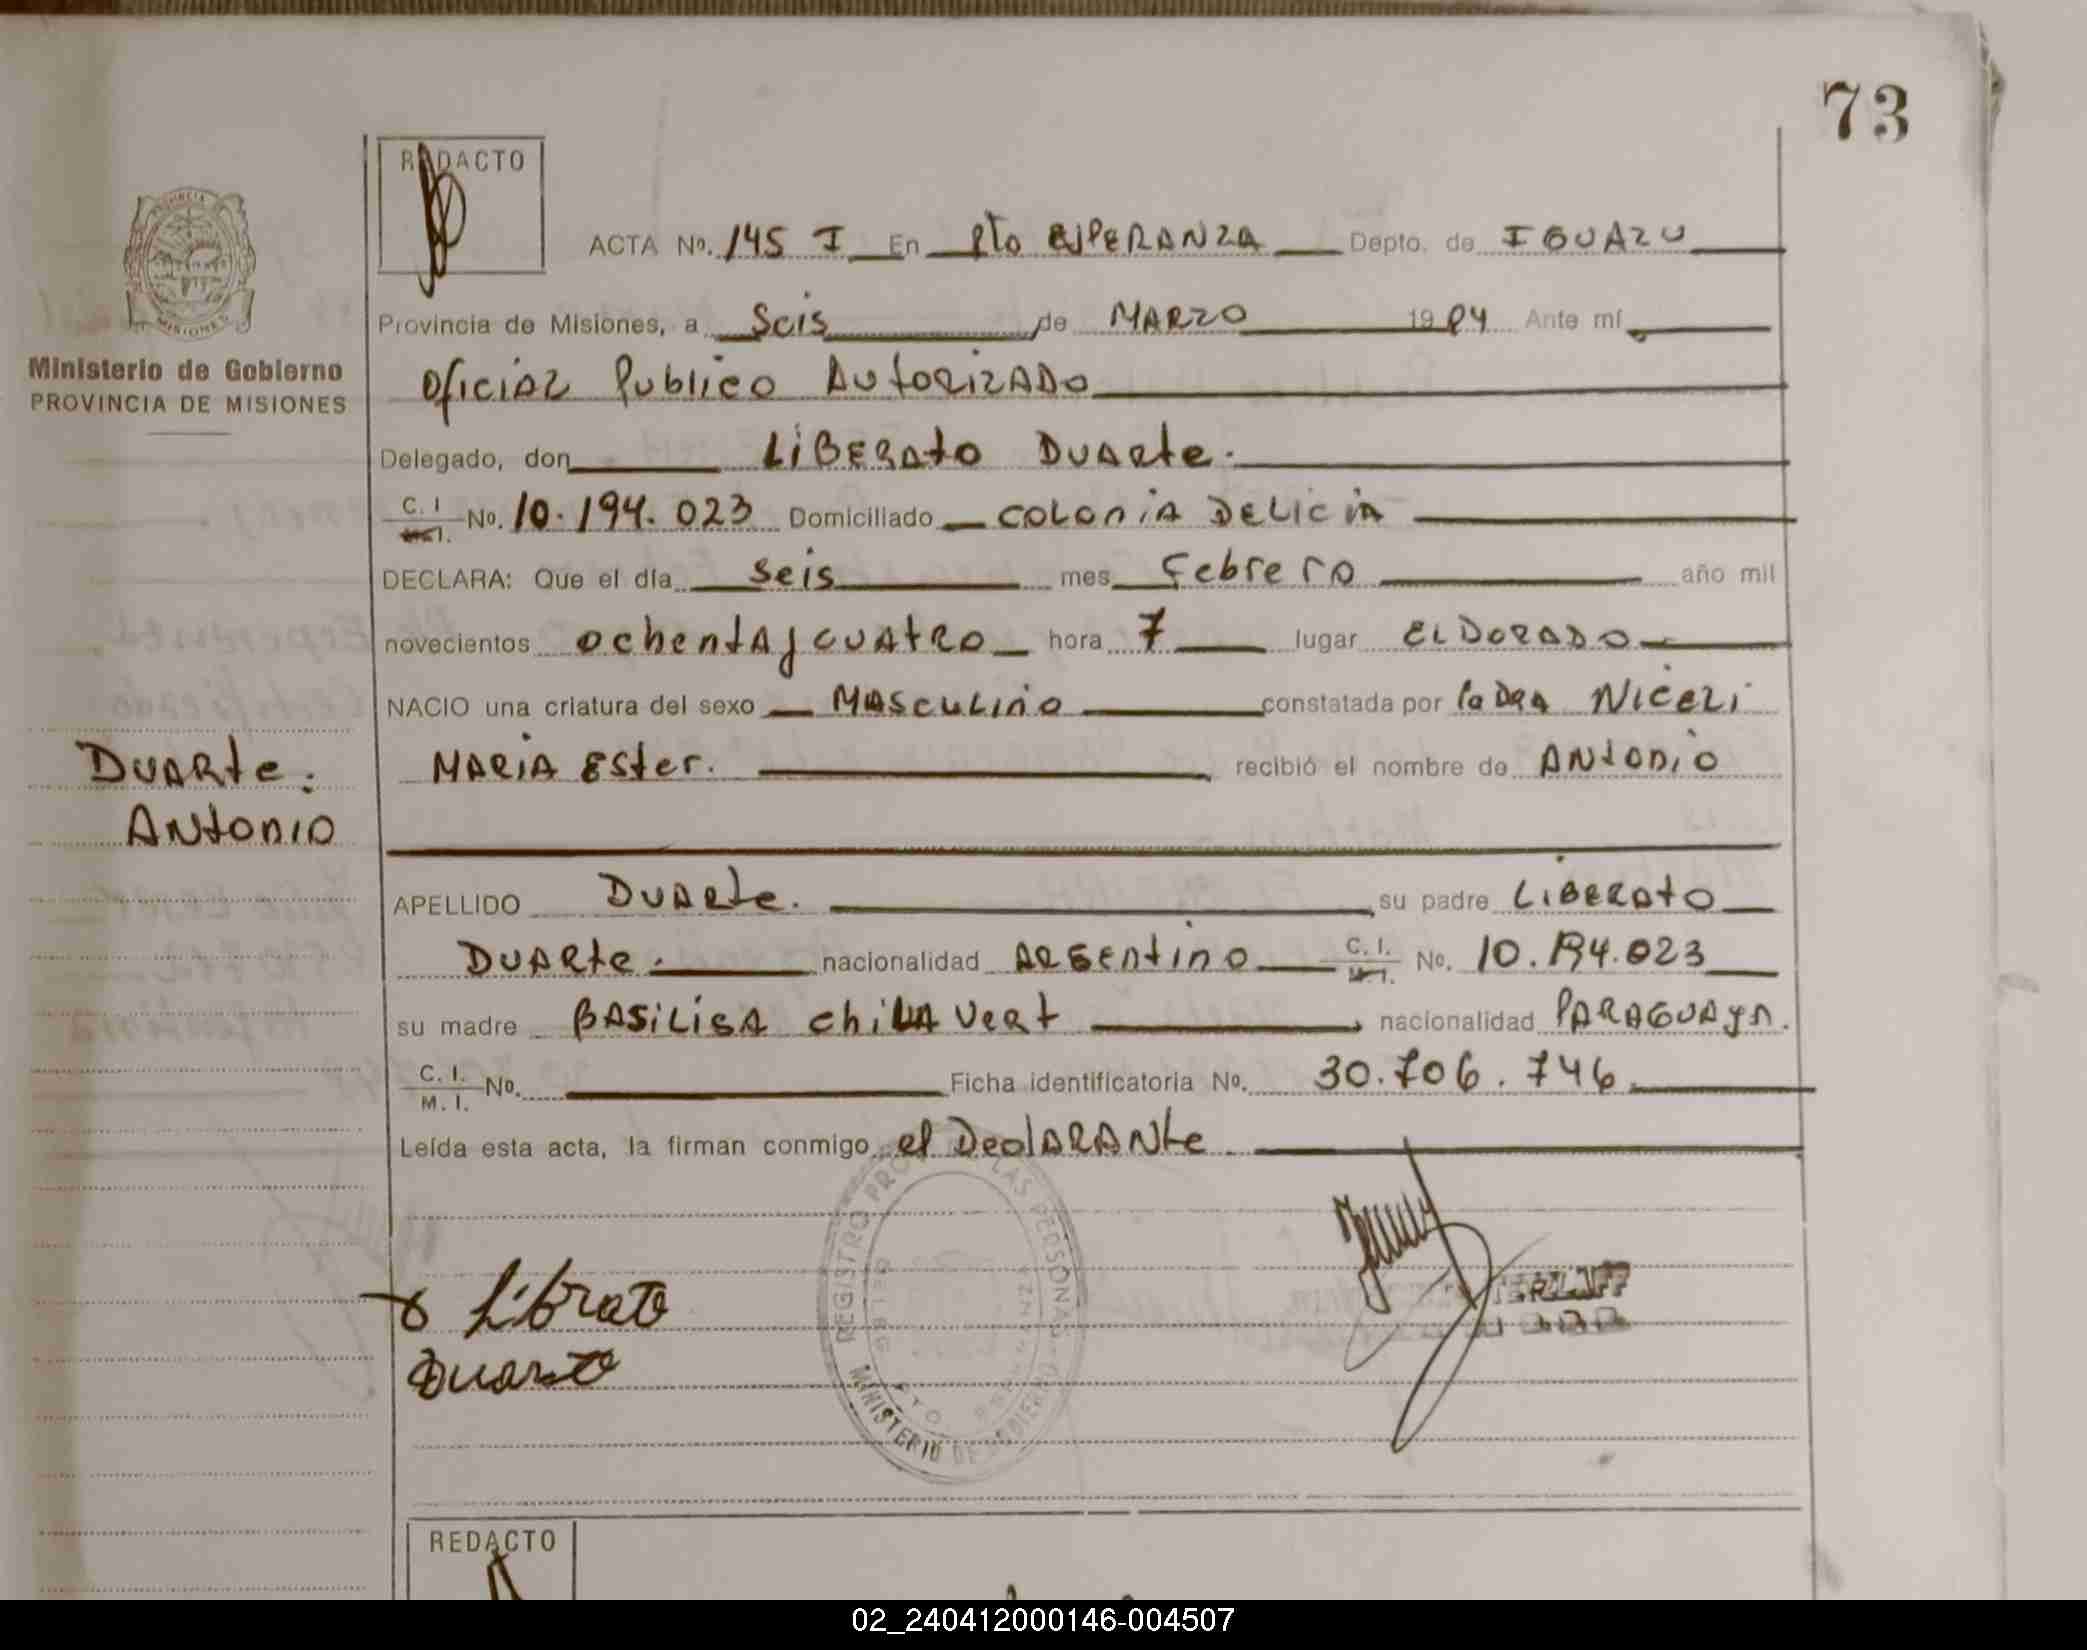 73
REDACTO
ACTA Nº. 145 I En Pto ESPERANZA Depto. de IGUAZU
Provincia de Misiones, a Seis de MARZO 1984 Ante mí
Oficial Publico AutoriZADo
Delegado, don LIBERAto DUARte.
C. I No. 10.194.023 Domiciliado COLONIA DELICIA
DECLARA: Que el día Seis mes Febrero año mil
novecientos ochentA y CUAtRO hora 7 lugar ELDORADO
NACIO una criatura del sexo MASCULINO constatada por la DRA NICELI
MARIA ESter. recibió el nombre de ANtONIO
APELLIDO DUARte. su padre LIBERAtO
DUARte. nacionalidad ARGENtino C. I. No. 10.194.023
su madre BASILISA ChiLAVERt nacionalidad PARAGUAYA.
C. I. M. I. No. Ficha identificatoria No. 30.706.746
Leída esta acta, la firman conmigo el DeclARANte
Ministerio de Gobierno
PROVINCIA DE MISIONES
DUARte.
ANtonio
Librato
Duarte
REGISTRO PRO LAS PERSONAS
MINISTERIO DE GOBIERNO
MISIONES
REDACTO
02_240412000146-004507